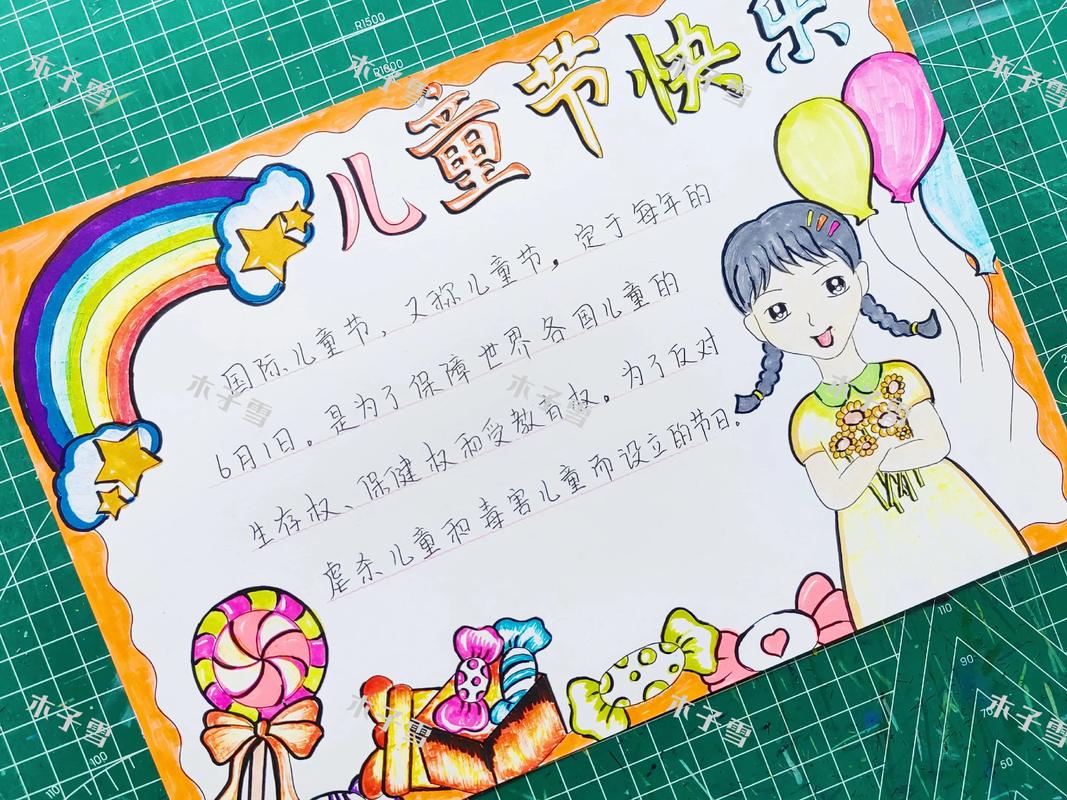 儿童节快乐
国际儿童节，又称儿童节，定于每年的
6月1日。是为了保障世界各国儿童的
生存权、保健权和受教育权。为了反对
虐杀儿童和毒害儿童而设立的节日。
木子雪
木子雪
木子雪
木子雪
木子雪
木子雪
木子雪
木子雪
木子雪
木子雪
R1500
R1800
110
100
110
90
70
50